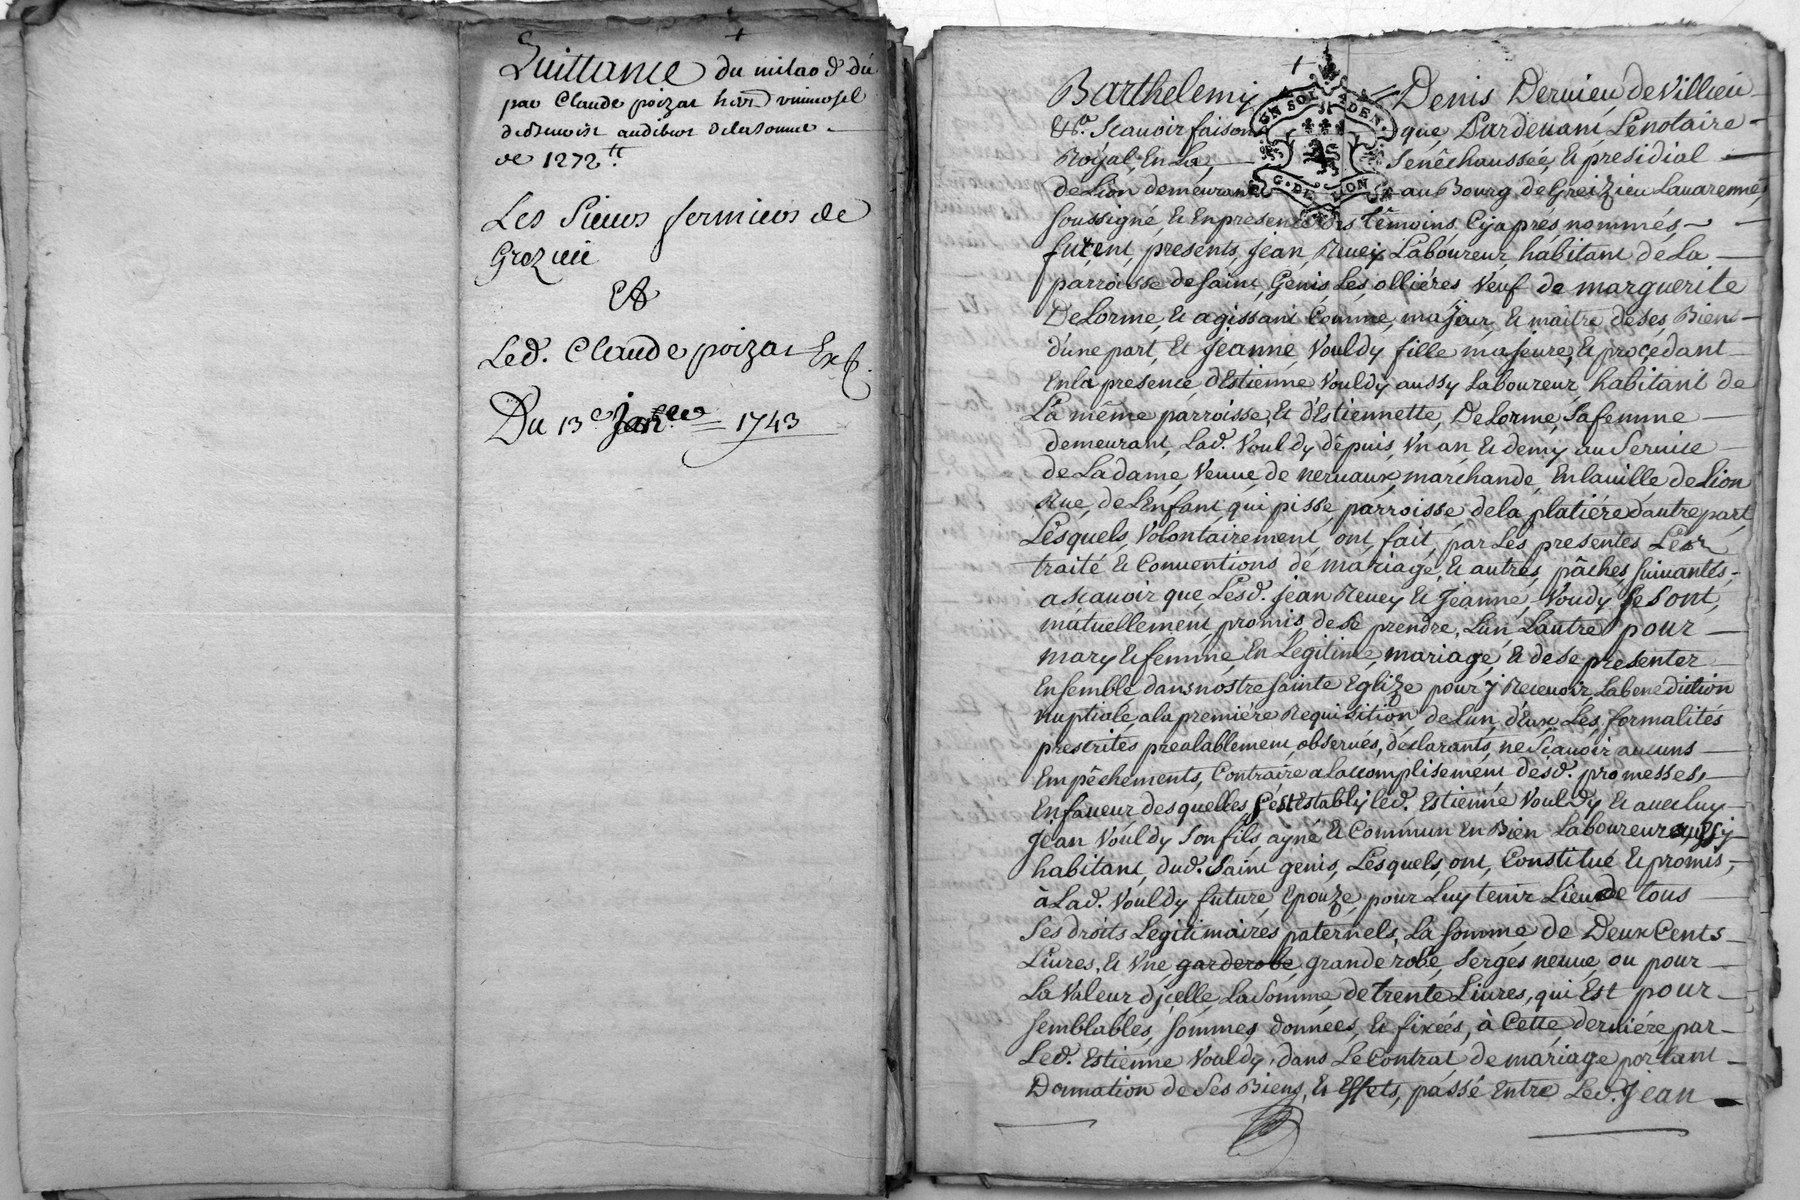 Quittance du milaod du
par Claude poizat
audibert delasomme
de 1272ᵗᵗ
Les Sieurs fermiers de
Grezieu
&
Led. Claude poizat
Du 13ᵉ 1743
Barthelemy Denis Dervieu de Villieu
&ᶜᵃ. Scauoir faisons que Pardeuant Lenotaire
Royal En La Senêchaussée, & presidial
de Lion demeurant au Bourg de Greizieu Lauarenne,
soussigné, & En presence des têmoins, Cyaprés nommés,
furent, presents, Jean, Reuey Laboureur, habitant de La
parroisse de Saint, Genis, Les, olliéres Veuf de marguerite
DeLorme, & agissant Comme, majeur, & maitre de ses, Bien
d'une part, & Jeanne, Vouldy fille majeure, & procédant
En la presence d'Estienne Vouldy aussy Laboureur, habitant de
La même parroisse, & d'Estiennette, DeLorme, Sa femme
demeurant, Lad. Vouldy dêpuis, Vn an, & demy au Seruice
de La dame, Veuue de neruaux, marchande, En lauille de Lion
Rue, de L'Enfant, qui pisse, parroisse de la platiére d'autre part,
Lesquels, Volontairement, ont, fait, par Les presentes, Les
traité & Conuentions de mariage, & autres, pâches, Suiuantes,
a scauoir que, Lesd. Jean Reuey & Jeanne, Voudy se sont,
mutuellement promis, de se prendre, L'un, L'autre pour
mary & femme, En Legitime, mariage, & de se presenter
Ensemble dans nostre Sainte Eglize pour y Receuoir, La benediction
nuptiale, a la premiére Requisition de L'un, d'eux, Les, formalités
prescrites prealablement, observés, déclarants, ne Scauoir aucuns
Empêchements, Contraire a Laccomplisement desd. promesses,
En faueur desquelles s'est Estably Led. Estienne Vouldy & auec luy
Jean Vouldy Son fils, ayné & Commun En Bien Laboureur aussy
habitant, dud. Saint genis, Lesquels, ont, Constitué & promis,
à Lad. Vouldy future Epouze, pour Luy tenir Lieu de tous
Ses droits Legitimaires paternels, La somme de Deux Cents
Liures, & Vne garderobe grande robe, Serges neuue, ou pour
La Valeur d'jcelle, La Somme, de trente Liures, qui Est pour
semblables, sommes, données, & fixées, à Cette, derniére, par
Led. Estienne Vouldy, dans Le Contrat de mariage portant
Donnation de Ses Biens, & Effets, passé Entre Led. Jean